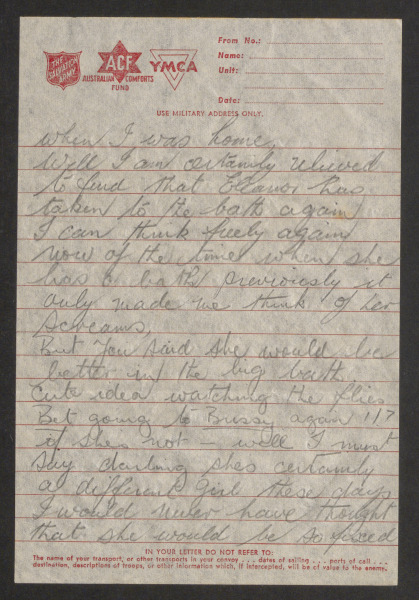 THE SALVATION ARMY
ACF
AUSTRALIAN COMFORTS FUND
YMCA
From No.:
Name:
Unit:
Date:
USE MILITARY ADDRESS ONLY.
when I was home,
Well I am certainly relieved
to find that Eleanor has
taken to the bath again
I can think freely again
now of the time when she
has a bath previously it
only made me think of her
screams,
But you said she would be
better in the big bath
Cute idea watching the flies
Bet going to again
if shes not – well I must
say darling shes certainly
a different girl these days
I would never have thought
that she would be so
IN YOUR LETTER DO NOT REFER TO:
The name of your transport, or other transports in your convoy . . . dates of sailing . . . ports of call . . .
destination, descriptions of troops, or other information which, if intercepted, will be of value to the enemy.